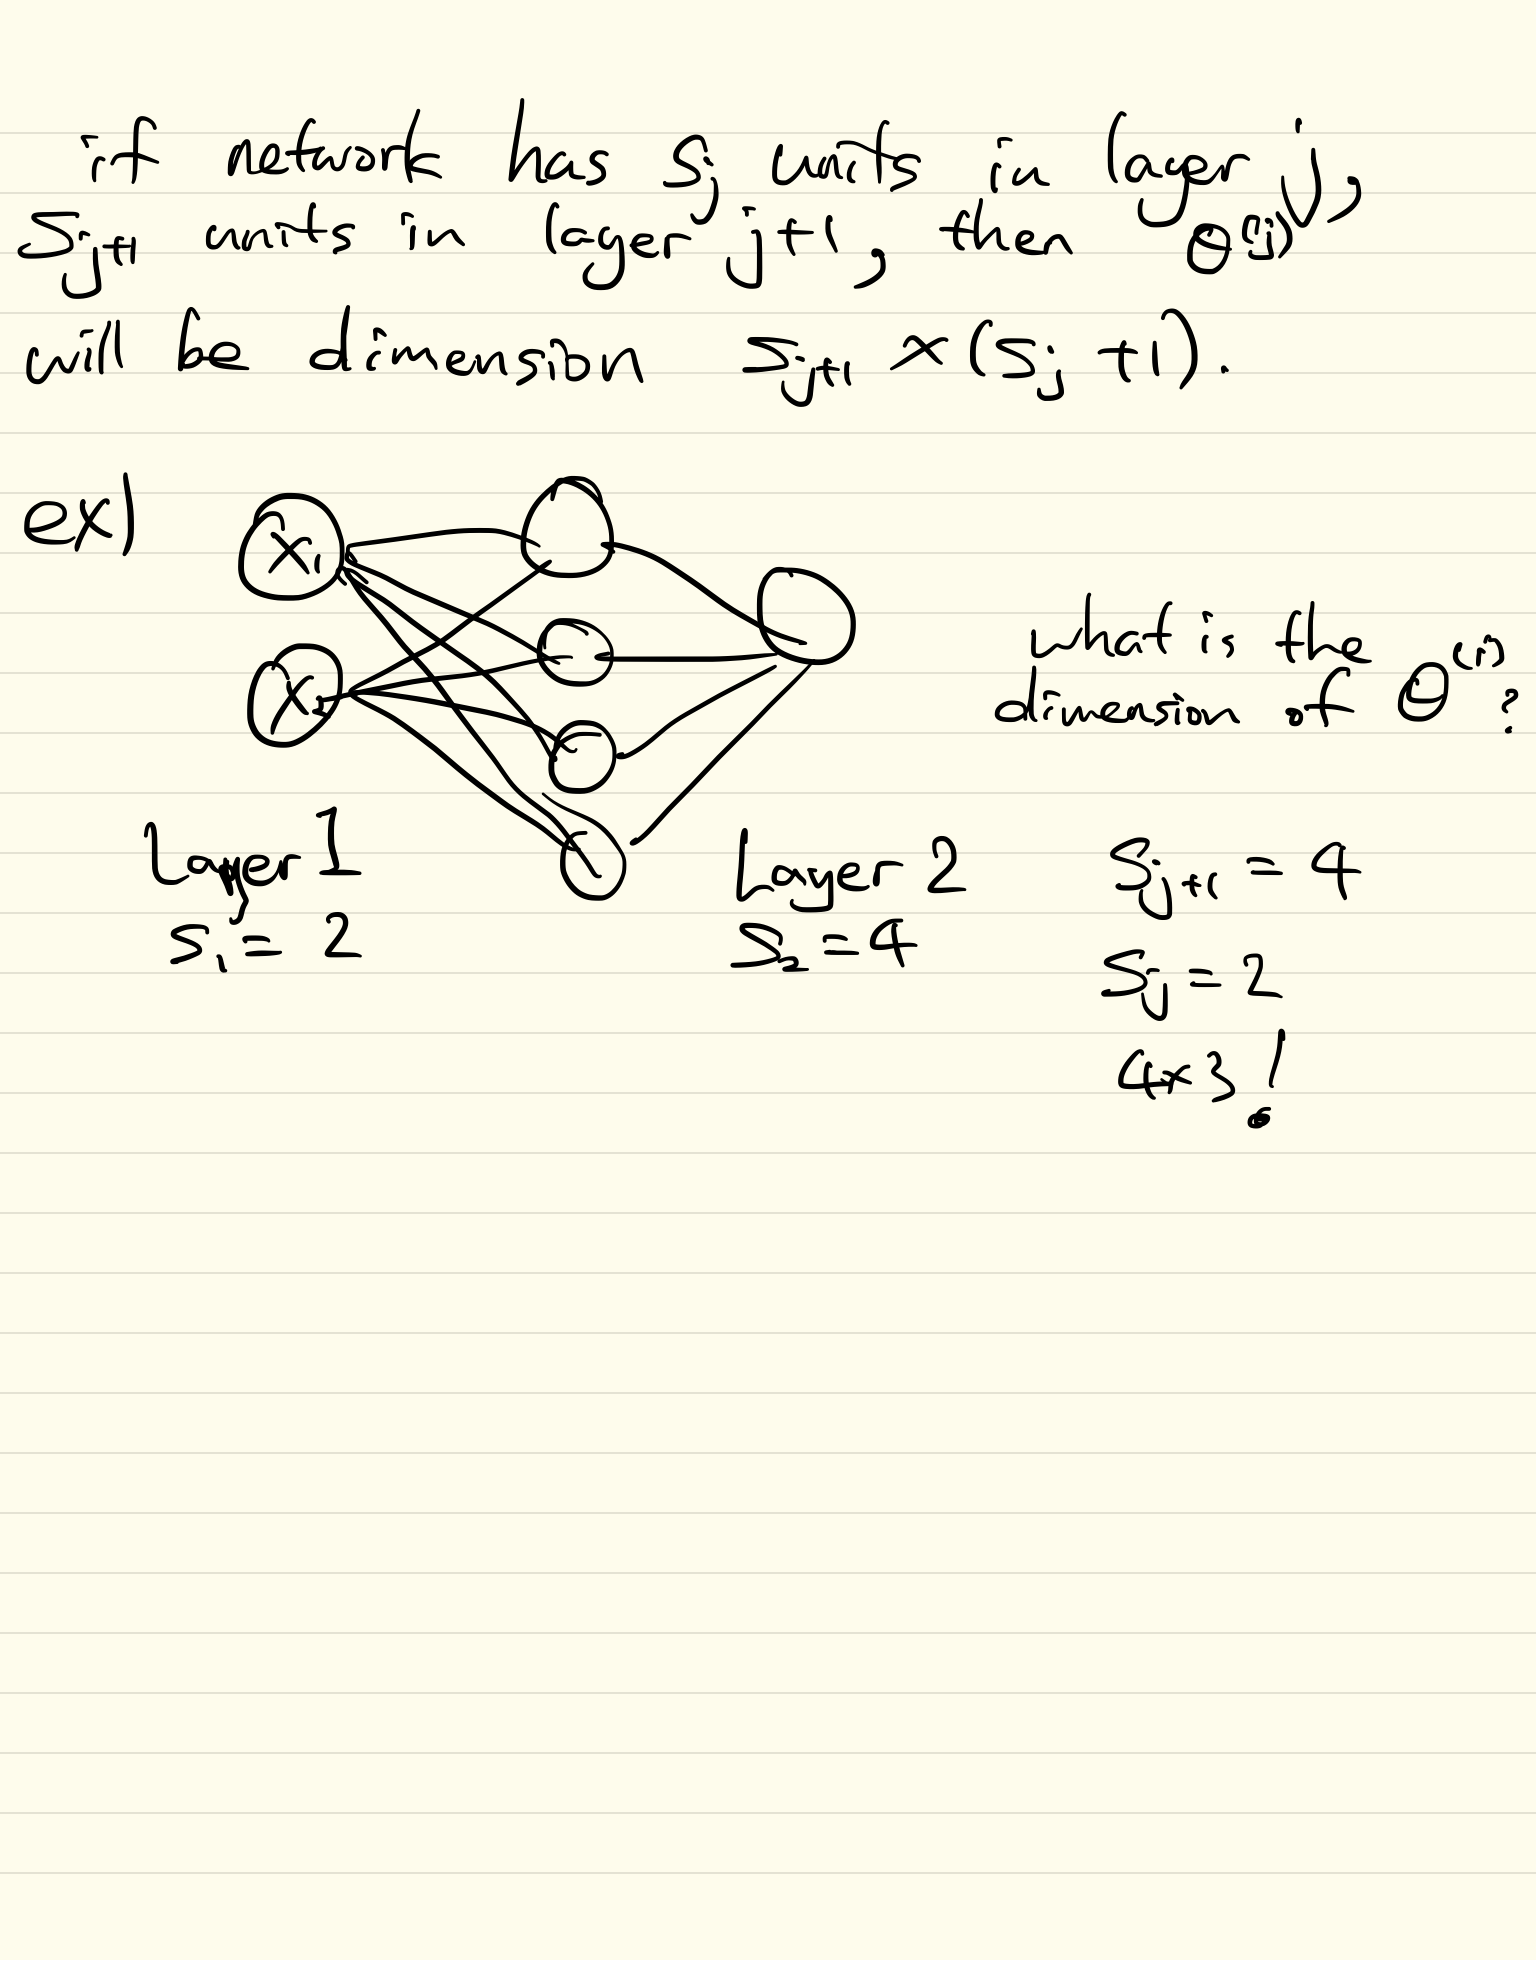 if network has Sj units in layer j,
Sj+1 units in layer j+1, then Θ(j)
will be dimension Sj+1 × (Sj +1).
ex)
X1
X2
what is the
dimension of Θ(1)?
Layer 1
S1 = 2
Layer 2
S2 = 4
Sj+1 = 4
Sj = 2
4×3!